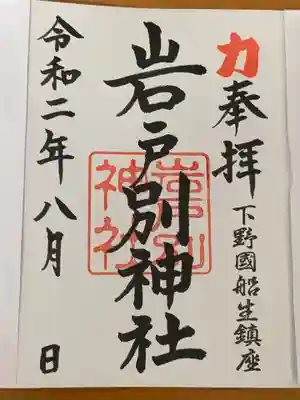 力
奉拝
下野國船生鎮座
岩戸別神社
令和二年八月 日